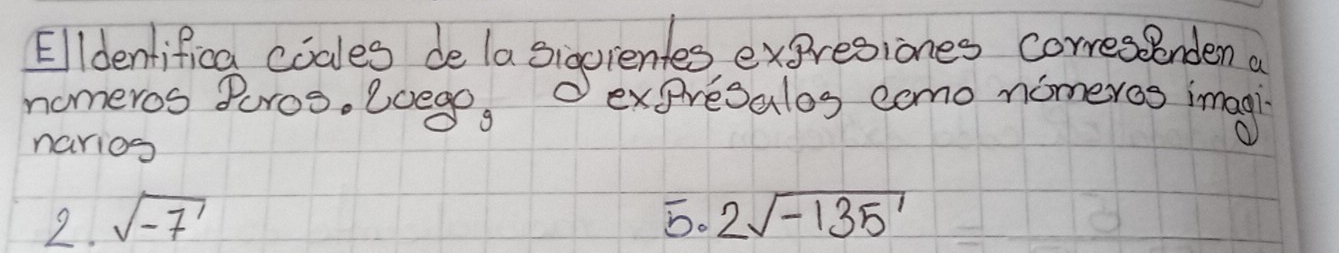 E Identifica cúales de la siguientes expresiones corresponden a
números Puros. Luego, exprésalos como números imagi-
narios
2. √-7 5. 2√-135